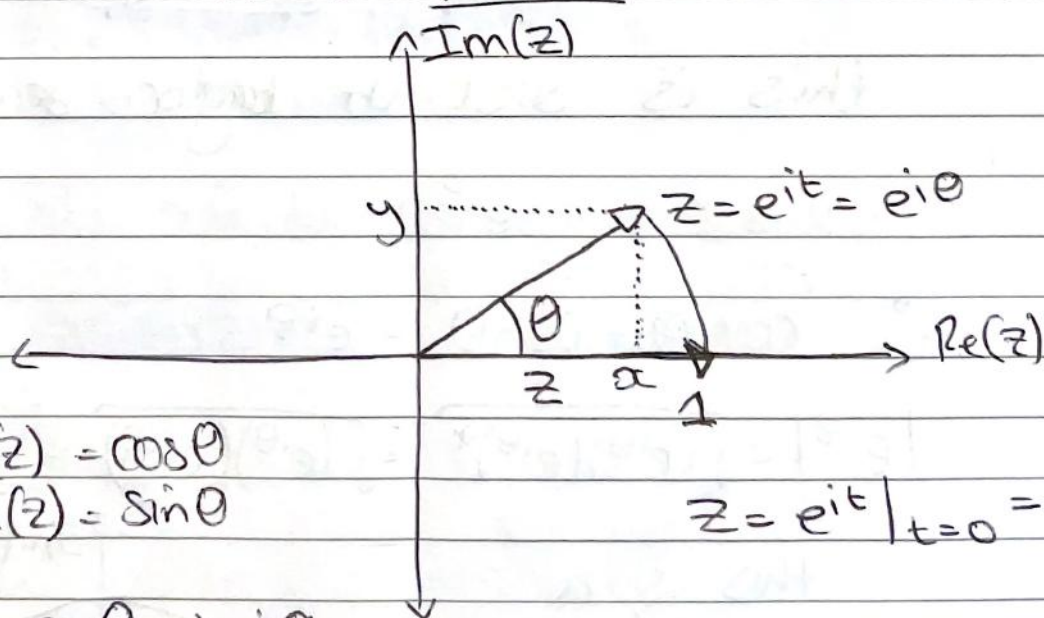 Im(z)
y
z = e^{it} = e^{iθ}
θ
Re(z)
z
x
1
z) = cosθ
(z) = sinθ
z = e^{it}|_{t=0} =